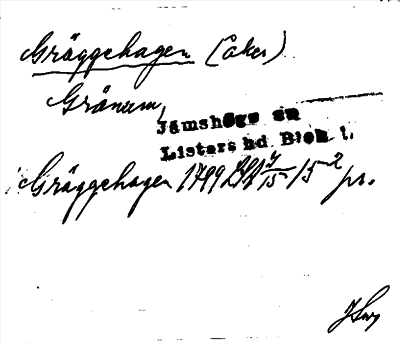 Gräggehagen (åker)
Gränum,
Jämshögs sn
Listers hd Blek. l.
Gräggehagen 1799 15 2 pr.